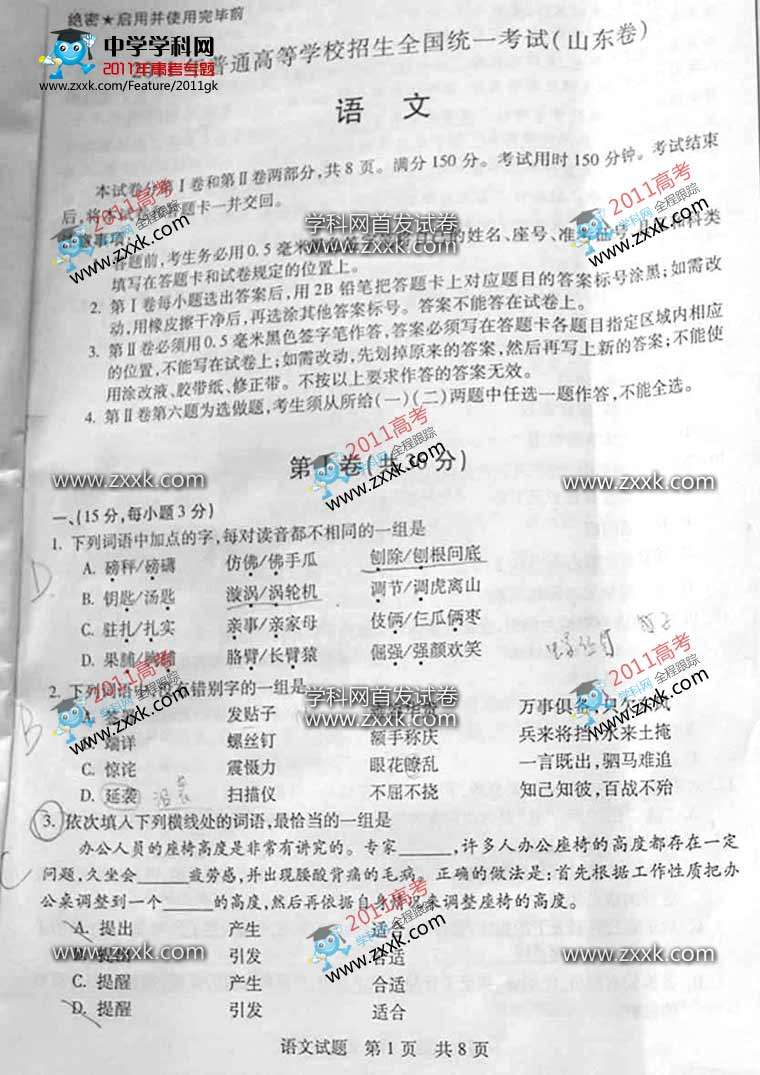 绝密★启用并使用完毕前
中学学科网
2011年高考专题
www.zxxk.com/Feature/2011gk
普通高等学校招生全国统一考试(山东卷)
语 文
本试卷分第Ⅰ卷和第Ⅱ卷两部分,共8页。满分150分。考试用时150分钟。考试结束
后,将 答题卡一并交回。
学科网首发试卷
www.zxxk.com
2011高考
学科网 全程跟踪
zxxk.com
2011高考
学科网 全程跟踪
zxxk.com
注意事项:
答题前,考生务必用0.5毫米 的姓名、座号、准 科类
填写在答题卡和试卷规定的位置上。
2. 第Ⅰ卷每小题选出答案后,用2B铅笔把答题卡上对应题目的答案标号涂黑;如需改
动,用橡皮擦干净后,再选涂其他答案标号。答案不能答在试卷上。
3. 第Ⅱ卷必须用0.5毫米黑色签字笔作答,答案必须写在答题卡各题目指定区域内相应
的位置,不能写在试卷上;如需改动,先划掉原来的答案,然后再写上新的答案;不能使
用涂改液、胶带纸、修正带。不按以上要求作答的答案无效。
4. 第Ⅱ卷第六题为选做题,考生须从所给(一)(二)两题中任选一题作答,不能全选。
第Ⅰ卷(共36分)
2011高考
学科网 全程跟踪
www.zxxk.com
www.zxxk.com
www.zxxk.com
一、(15分,每小题3分)
1. 下列词语中加点的字,每对读音都不相同的一组是
D.
A. 磅秤/磅礴 仿佛/佛手瓜 刨除/刨根问底
B. 钥匙/汤匙 漩涡/涡轮机 调节/调虎离山
C. 驻扎/扎实 亲事/亲家母 伎俩/仨瓜俩枣
D. 果脯/胸脯 胳臂/长臂猿 倔强/强颜欢笑
2011高考
学科网 全程跟踪
zxxk.com
学科网首发试卷
www.zxxk.com
2011高考
学科网 全程跟踪
zxxk.com
2. 下列词语中没有错别字的一组是
B
A. 发贴子 万事俱备,只欠东风
B. 端详 螺丝钉 额手称庆 兵来将挡,水来土掩
C. 惊诧 震慑力 眼花瞭乱 一言既出,驷马难追
D. 延袭 扫描仪 不屈不挠 知己知彼,百战不殆
3. 依次填入下列横线处的词语,最恰当的一组是
C
办公人员的座椅高度是非常有讲究的。专家______,许多人办公座椅的高度都存在一定
问题,久坐会______疲劳感,并出现腰酸背痛的毛病。正确的做法是:首先根据工作性质把办
公桌调整到一个______的高度,然后再依据自身情况来调整座椅的高度。
A. 提出 产生 适合
B. 提出 引发 合适
C. 提醒 产生 合适
D. 提醒 引发 适合
www.zxxk.com
2011高考
学科网 全程跟踪
www.zxxk.com
www.zxxk.com
语文试题 第1页 共8页